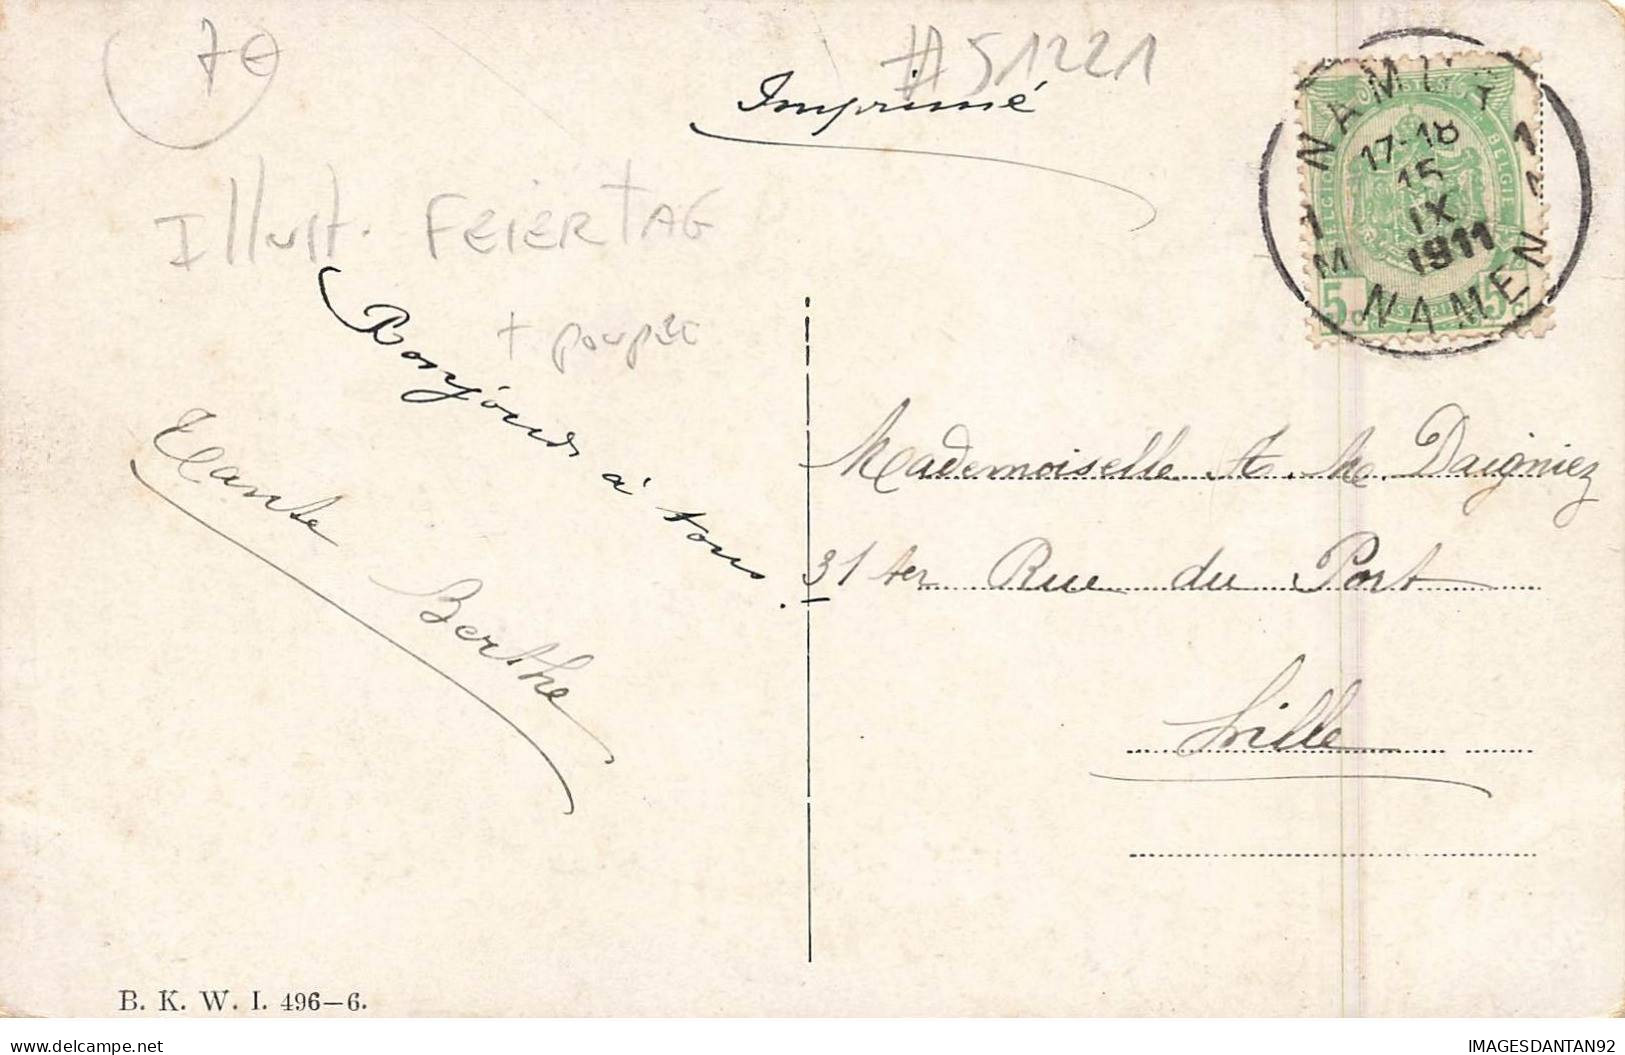 7€
#51221
Imprimé
Illust. FEIERTAG
+ poupée
NAMUR
17-18
15
IX
1911
NAMEN
1 M
1 1
BELGIQUE BELGIE
5c 5c
Bonjour à tous.
Tante
Berthe
Mademoiselle A. M. Daigniez
31 ter Rue du Port
Lille
B. K. W. I. 496–6.
delcampe.net
IMAGESDANTAN92